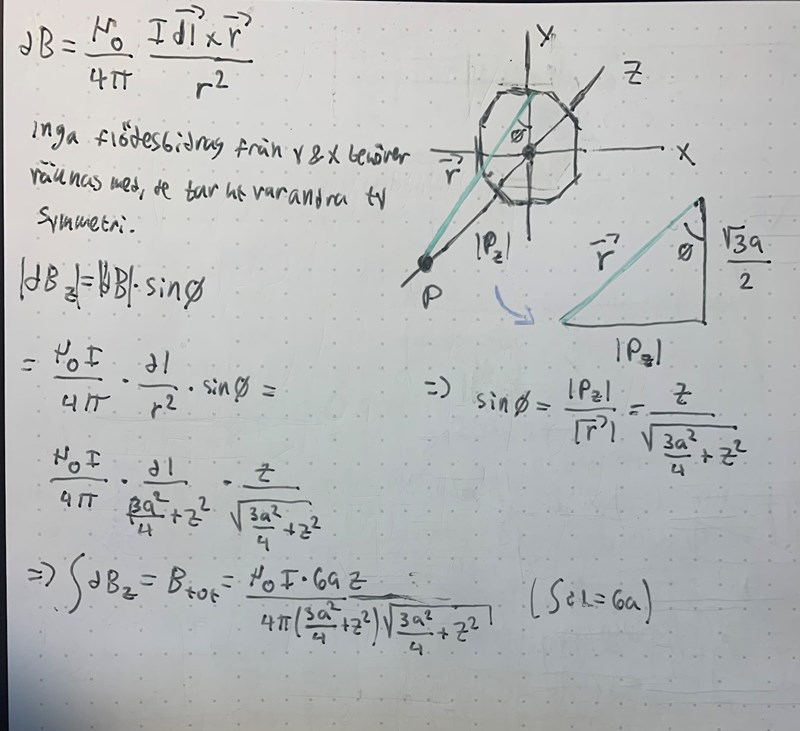 dB = μ₀/4π I dl⃗ x r⃗/r²
Inga flödesbidrag från Y & X behöver
räknas med, de tar ut varandra tv
symmetri.
|dB_z| = |dB| · sinø
= μ₀I/4π · dl/r² · sinø =
μ₀I/4π · dl/(3a²/4 + z²) · z/√(3a²/4 + z²)
=> ∫dB_z = B_tot = μ₀I · 6a z/(4π(3a²/4 + z²)√(3a²/4 + z²)) (∫dL = 6a)
Y
Z
ø
X
r⃗
|P_z|
P
r⃗
ø
√3a/2
|P_z|
=> sinø = |P_z|/|r⃗| = z/√(3a²/4 + z²)